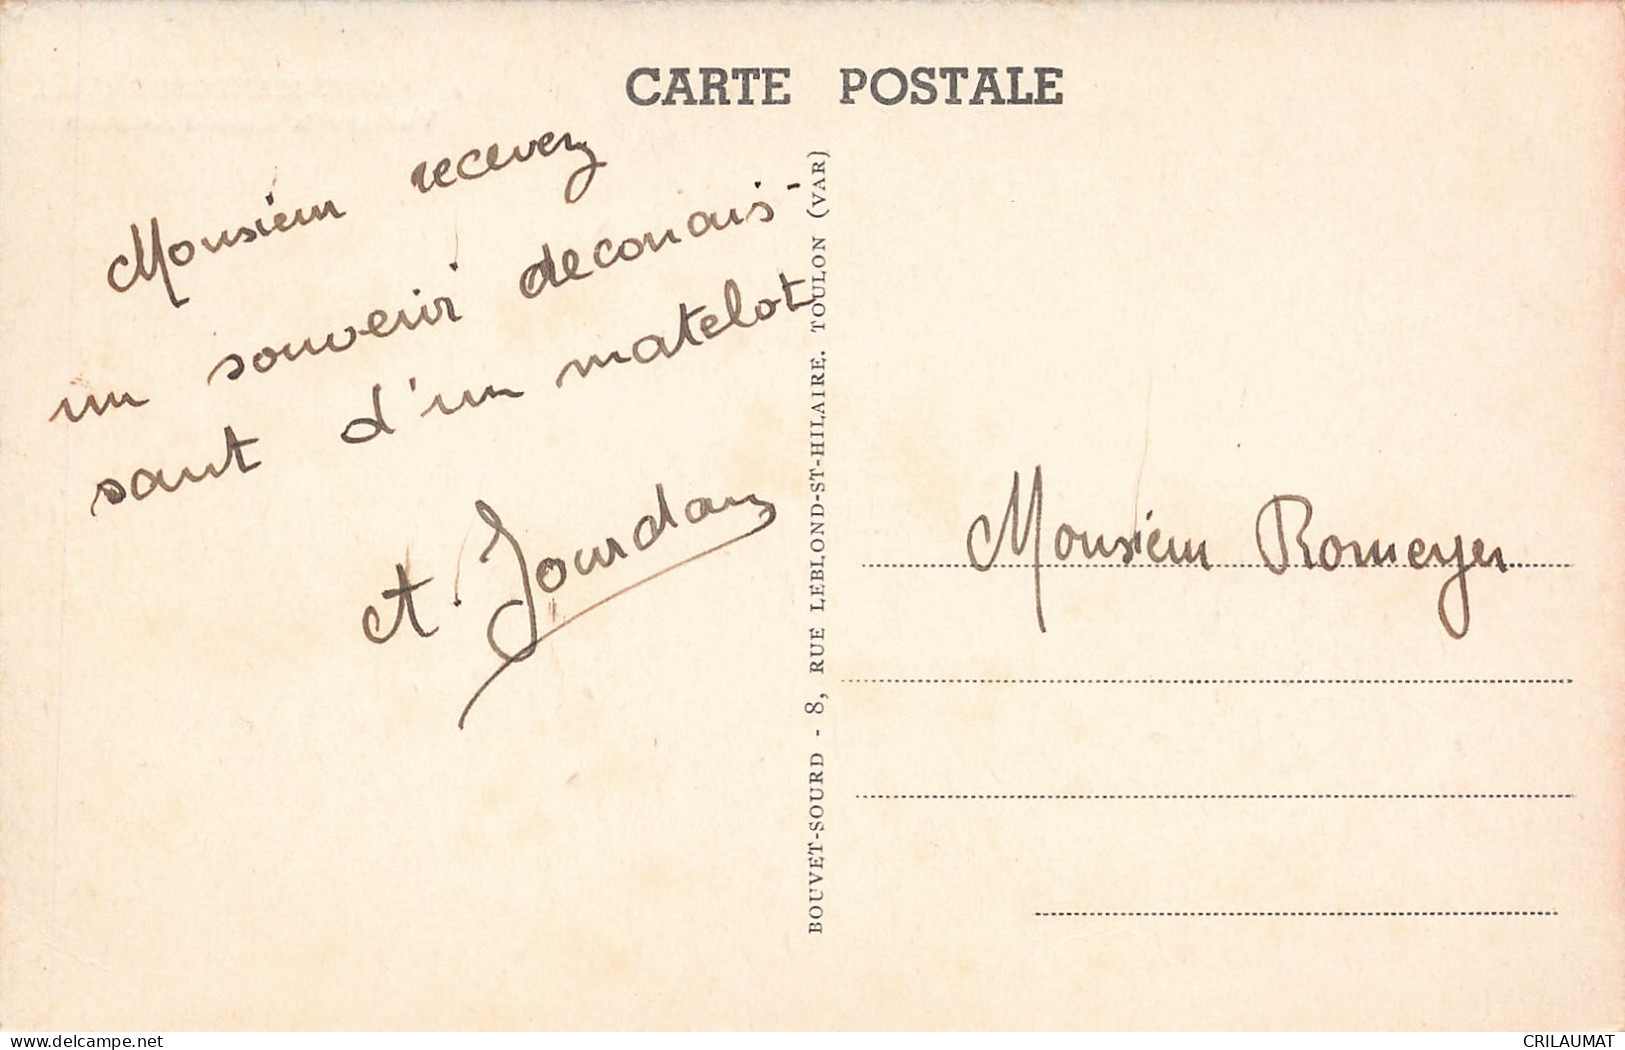 CARTE POSTALE
Monsieur recevez
un souvenir deconais-
sant d'un matelot
A. Jourdan
BOUVET-SOURD - 8, RUE LEBLOND-ST-HILAIRE. TOULON (VAR)
Monsieur Romeyer
www.delcampe.net
CRILAUMAT